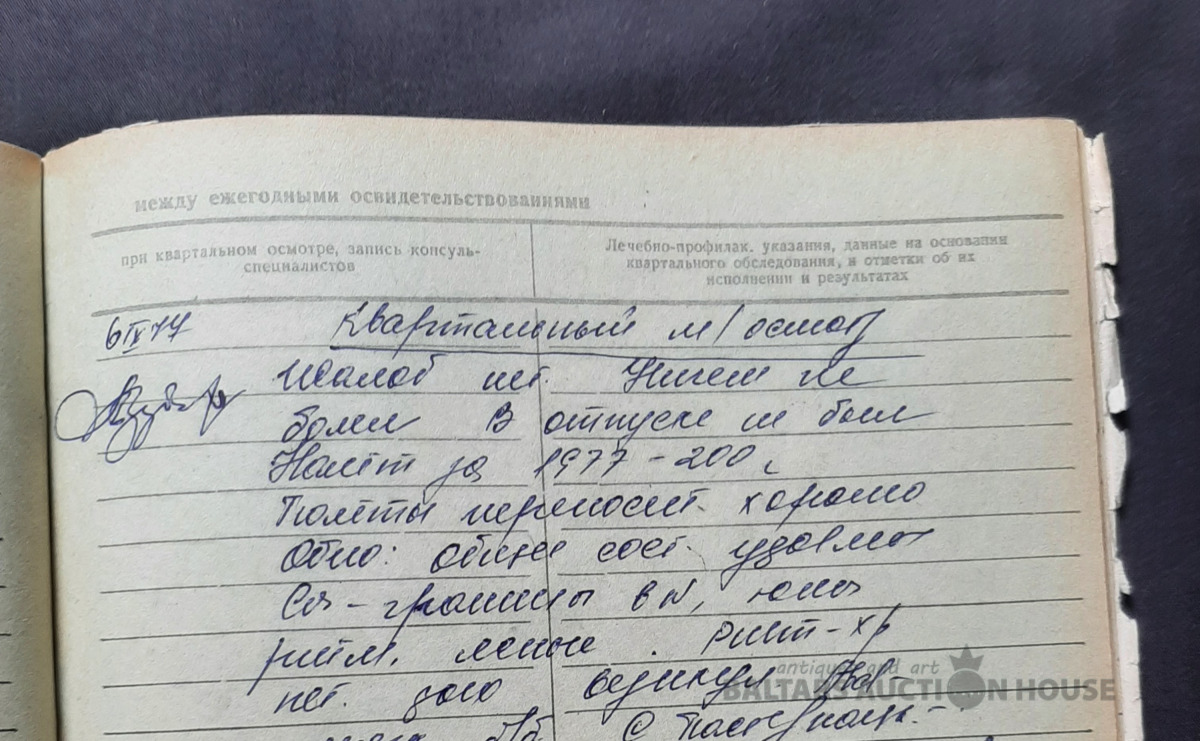 между ежегодными освидетельствованиями
при квартальном осмотре, запись консуль-
специалистов
Лечебно-профилак. указания, данные на основании
квартального обследования, и отметки об их
исполнении и результатах
6 IX 77 Квартальный м/осмотр
Жалоб нет. Ничем не
болел В отпуске не был
Налёт за 1977 - 200
Полёты переносит хорошо
общее сост. удовлет
Cor - границы в N, тоны
ритм. ясные.
нет.
antiques and art
BALTARS AUCTION HOUSE